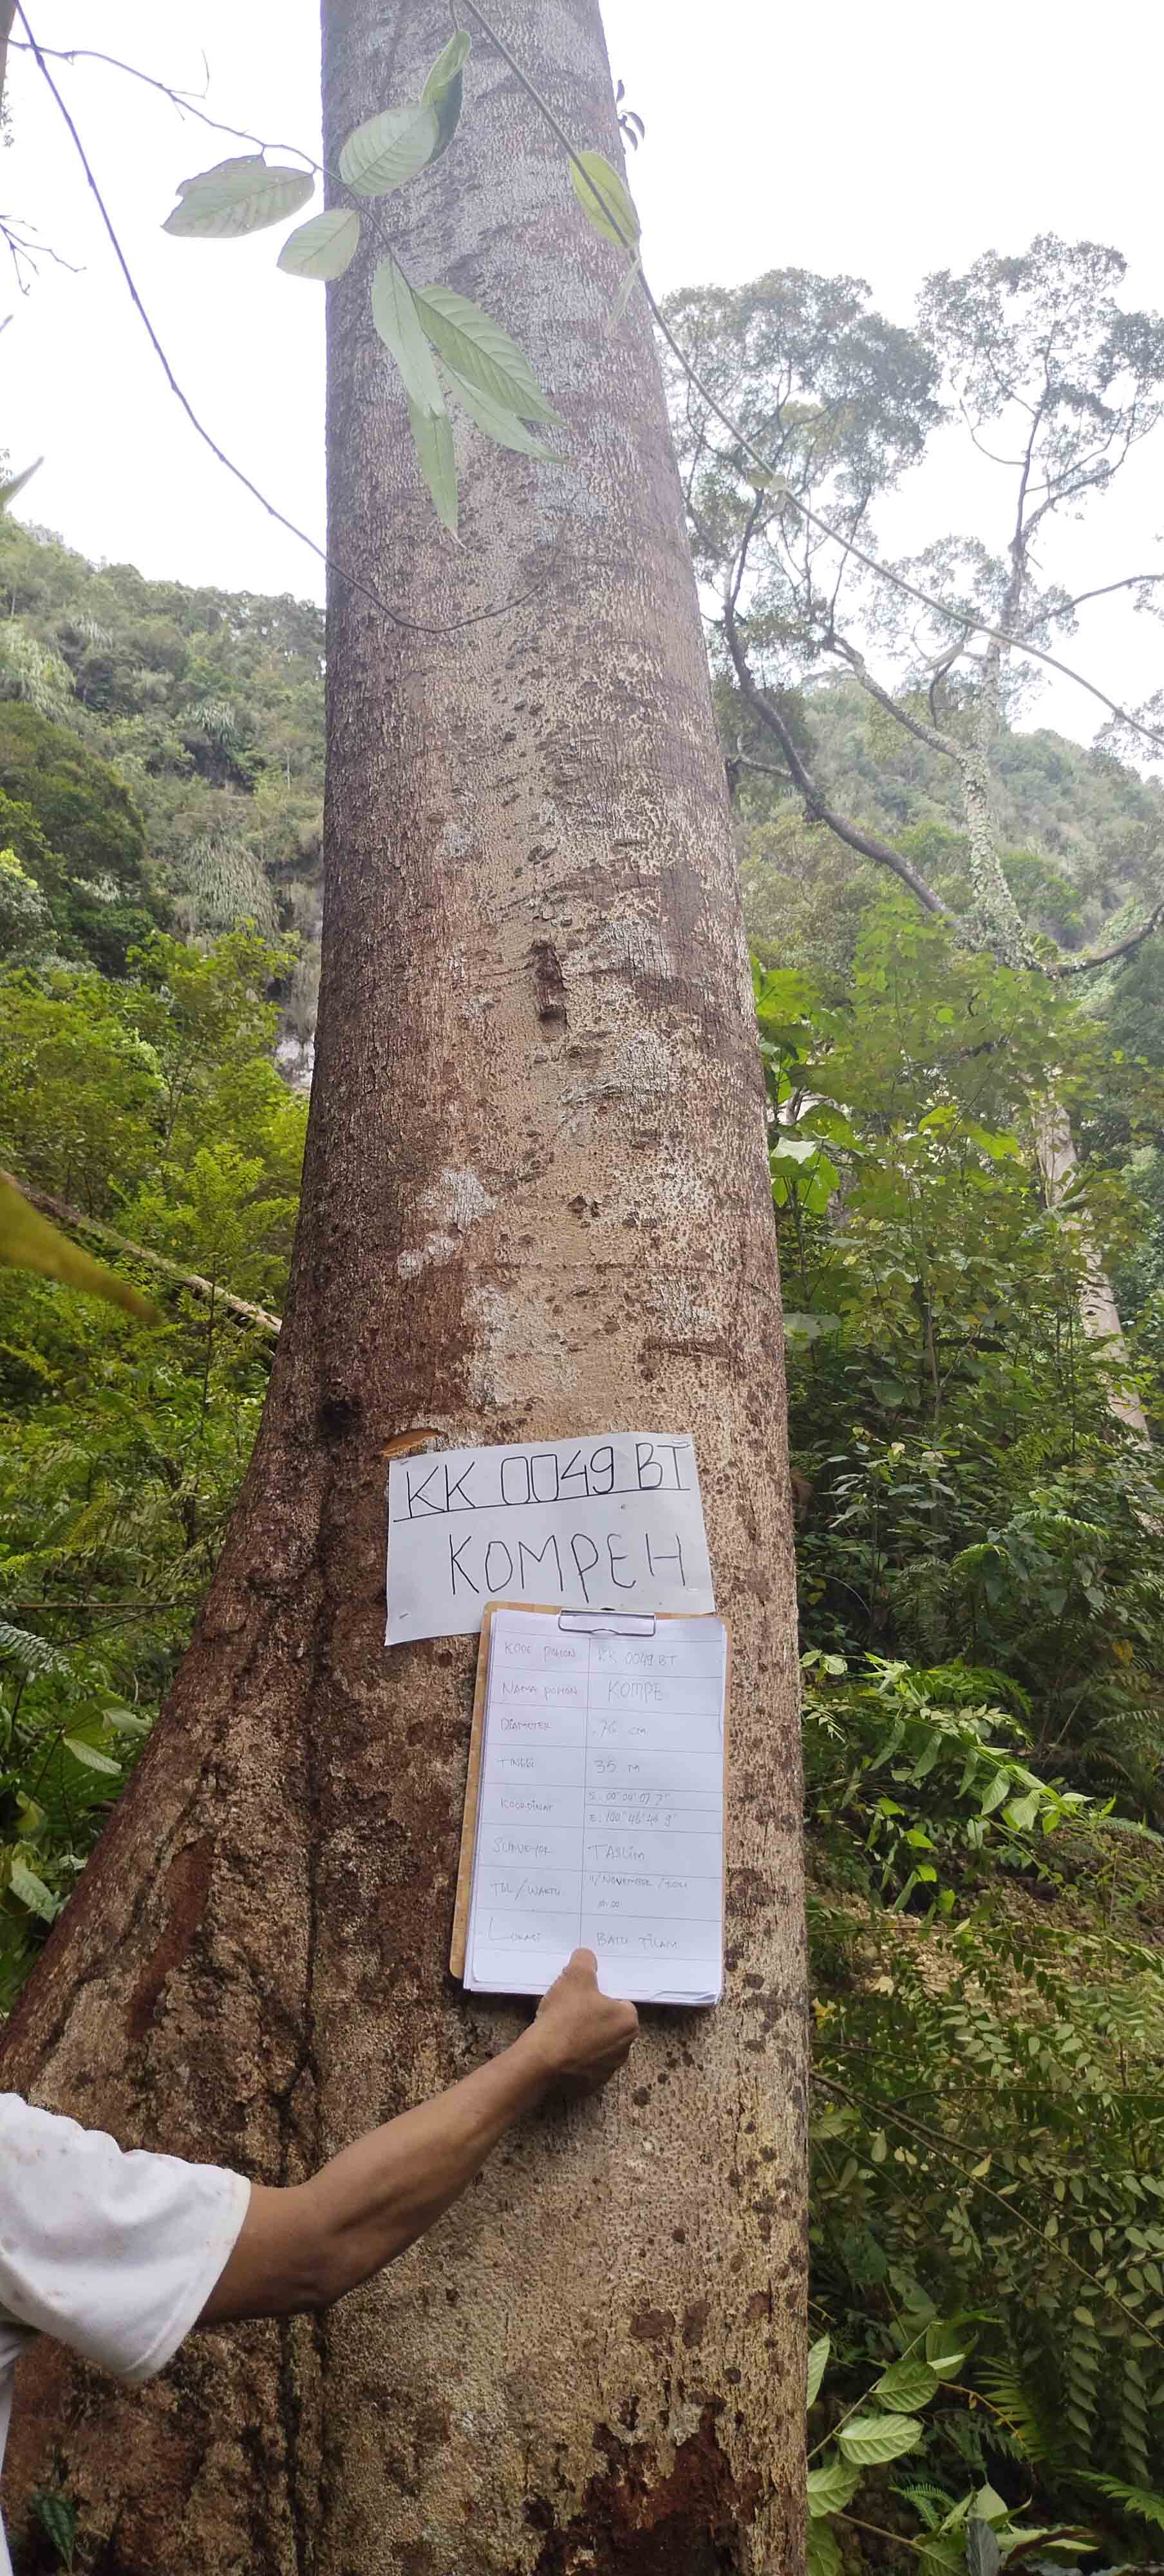 KK 0049 BT
KOMPEH
KODE POHON KK 0049 BT
NAMA POHON KOMPE
DIAMETER cm
TINGGI 35 M
KOORDINAT S. 00° 00' 07 7"
E. 100° 46'
SURVEYOR TASLIM
TGL/WAKTU 11/NOVEMBER/2021
LOKASI BATU TILAM